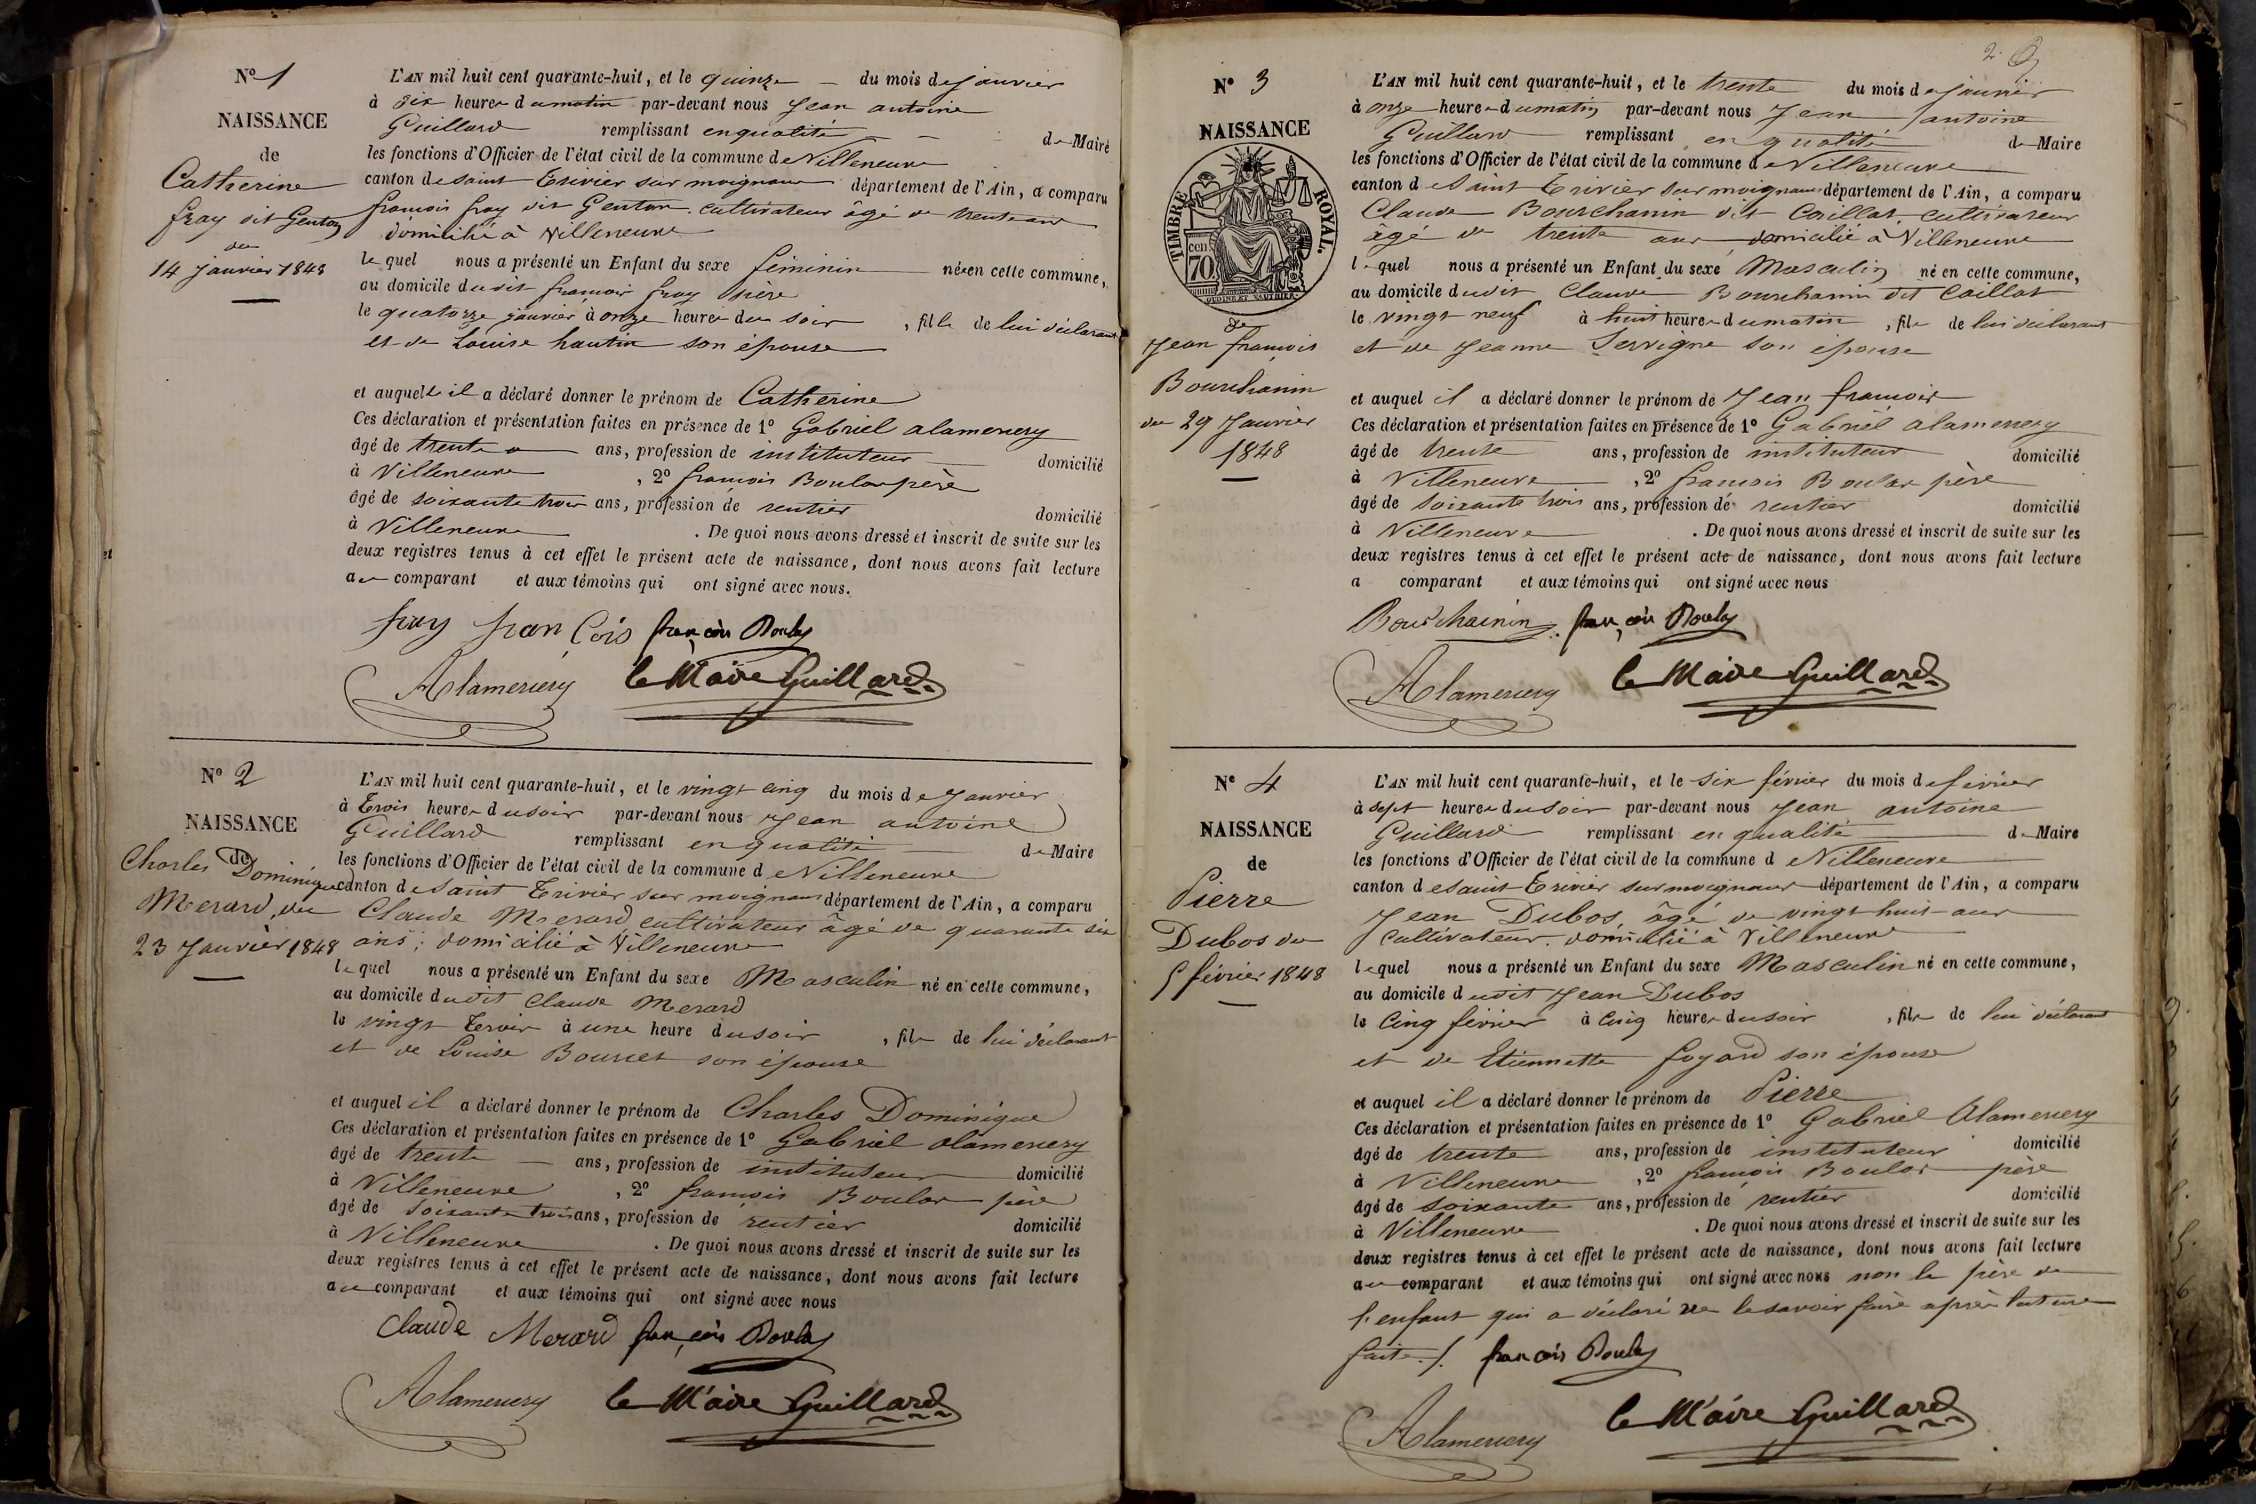 No 1
NAISSANCE
de
Catherine
fray dit Genton
du
14 janvier 1848
L'AN mil huit cent quarante-huit, et le quinze du mois de janvier
à six heures du matin par-devant nous Jean antoine
Guillard remplissant en qualité de Maire
les fonctions d'Officier de l'état civil de la commune de Villeneuve
canton de saint Trivier sur moignans département de l'Ain, a comparu
françois fray dit Genton cultivateur âgé de trente ans
domicilié à Villeneuve
lequel nous a présenté un Enfant du sexe féminin née en cette commune,
au domicile dudit françois fray père
le quatorze janvier à onze heures du soir, fille de lui déclarant
et de Louise hautin son épouse
et auquelle il a déclaré donner le prénom de Catherine
Ces déclaration et présentation faites en présence de 1º Gabriel alamercery
âgé de trente ans, profession de instituteur domicilié
à Villeneuve, 2º françois Boulas père
âgé de soixante trois ans, profession de rentier domicilié
à Villeneuve. De quoi nous avons dressé et inscrit de suite sur les
deux registres tenus à cet effet le présent acte de naissance, dont nous avons fait lecture
au comparant et aux témoins qui ont signé avec nous.
fray françois françois Boulas
Alamercery le Maire Guillard
No 2
NAISSANCE
de
Charles Dominique
Merard, du
23 Janvier 1848
L'AN mil huit cent quarante-huit, et le vingt cinq du mois de Janvier
à Trois heures du soir par-devant nous Jean antoine
Guillard remplissant en qualité de Maire
les fonctions d'Officier de l'état civil de la commune de Villeneuve
canton de saint Trivier sur moignans département de l'Ain, a comparu
Claude Merard cultivateur âgé de quarante six
ans, domicilié à Villeneuve
lequel nous a présenté un Enfant du sexe Masculin né en cette commune,
au domicile dudit Claude Merard
le vingt Trois à une heure du soir, fils de lui déclarant
et de Louise Bourcet son épouse
et auquel il a déclaré donner le prénom de Charles Dominique
Ces déclaration et présentation faites en présence de 1º Gabriel alamercery
âgé de trente ans, profession de instituteur domicilié
à Villeneuve, 2º françois Boulas père
âgé de soixante trois ans, profession de rentier domicilié
à Villeneuve. De quoi nous avons dressé et inscrit de suite sur les
deux registres tenus à cet effet le présent acte de naissance, dont nous avons fait lecture
au comparant et aux témoins qui ont signé avec nous
Claude Merard françois Boulas
Alamercery le Maire Guillard
2
No 3
NAISSANCE
TIMBRE ROYAL.
cen
70
de
Jean françois
Bourchanin
du 29 Janvier
1848
L'AN mil huit cent quarante-huit, et le trente du mois de janvier
à onze heures du matin par-devant nous Jean antoine
Guillard remplissant en qualité de Maire
les fonctions d'Officier de l'état civil de la commune de Villeneuve
canton de saint Trivier sur moignans département de l'Ain, a comparu
Claude Bourchanin dit Caillat, cultivateur
âgé de trente ans domicilié à Villeneuve
lequel nous a présenté un Enfant du sexe Masculin né en cette commune,
au domicile dudit Claude Bourchanin dit Caillat
le vingt neuf à huit heures du matin, fils de lui déclarant
et de Jeanne Servigne son épouse
et auquel il a déclaré donner le prénom de Jean françois
Ces déclaration et présentation faites en présence de 1º Gabriel alamercery
âgé de trente ans, profession de instituteur domicilié
à Villeneuve, 2º françois Boulas père
âgé de soixante trois ans, profession de rentier domicilié
à Villeneuve. De quoi nous avons dressé et inscrit de suite sur les
deux registres tenus à cet effet le présent acte de naissance, dont nous avons fait lecture
a comparant et aux témoins qui ont signé avec nous
Bourchainin françois Boulas
Alamercery le Maire Guillard
No 4
NAISSANCE
de
Pierre
Dubos du
5 février 1848
L'AN mil huit cent quarante-huit, et le six février du mois de février
à sept heures du soir par-devant nous Jean antoine
Guillard remplissant en qualité de Maire
les fonctions d'Officier de l'état civil de la commune de Villeneuve
canton de saint Trivier sur moignans département de l'Ain, a comparu
Jean Dubos, âgé de vingt huit ans
cultivateur. domicilié à Villeneuve
lequel nous a présenté un Enfant du sexe Masculin né en cette commune,
au domicile dudit Jean Dubos
le cinq février à cinq heures du soir, fils de lui déclarant
et de Etiennette foyard son épouse
et auquel il a déclaré donner le prénom de Pierre
Ces déclaration et présentation faites en présence de 1º Gabriel Alamercery
âgé de trente ans, profession de instituteur domicilié
à Villeneuve, 2º françois Boulas père
âgé de soixante ans, profession de rentier domicilié
à Villeneuve. De quoi nous avons dressé et inscrit de suite sur les
deux registres tenus à cet effet le présent acte de naissance, dont nous avons fait lecture
au comparant et aux témoins qui ont signé avec nous non le père de
l'enfant qui a déclaré ne le savoir faire après lecture
faite./. françois Boulas
Alamercery le Maire Guillard